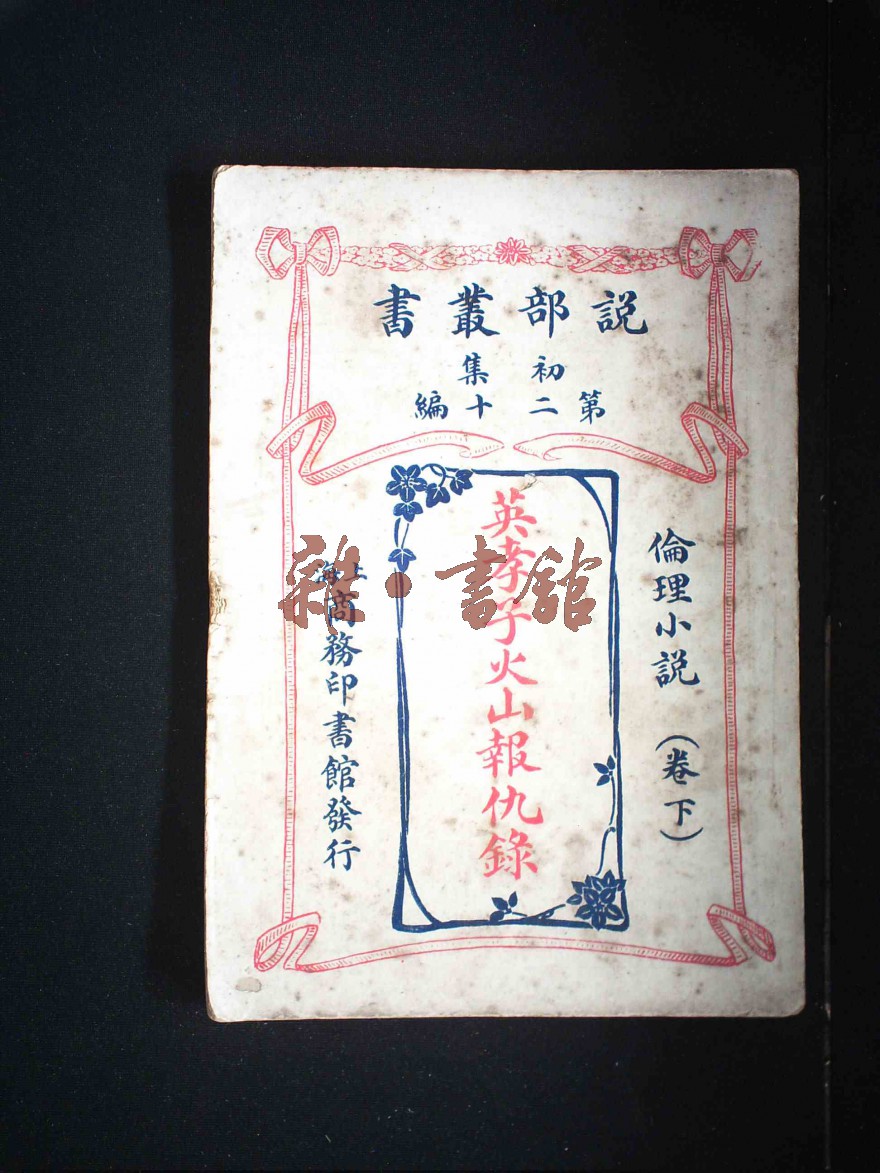 説部叢書
初集
第二十編
倫理小説（卷下）
英孝子火山報仇錄
上海商務印書館發行
雜·書館